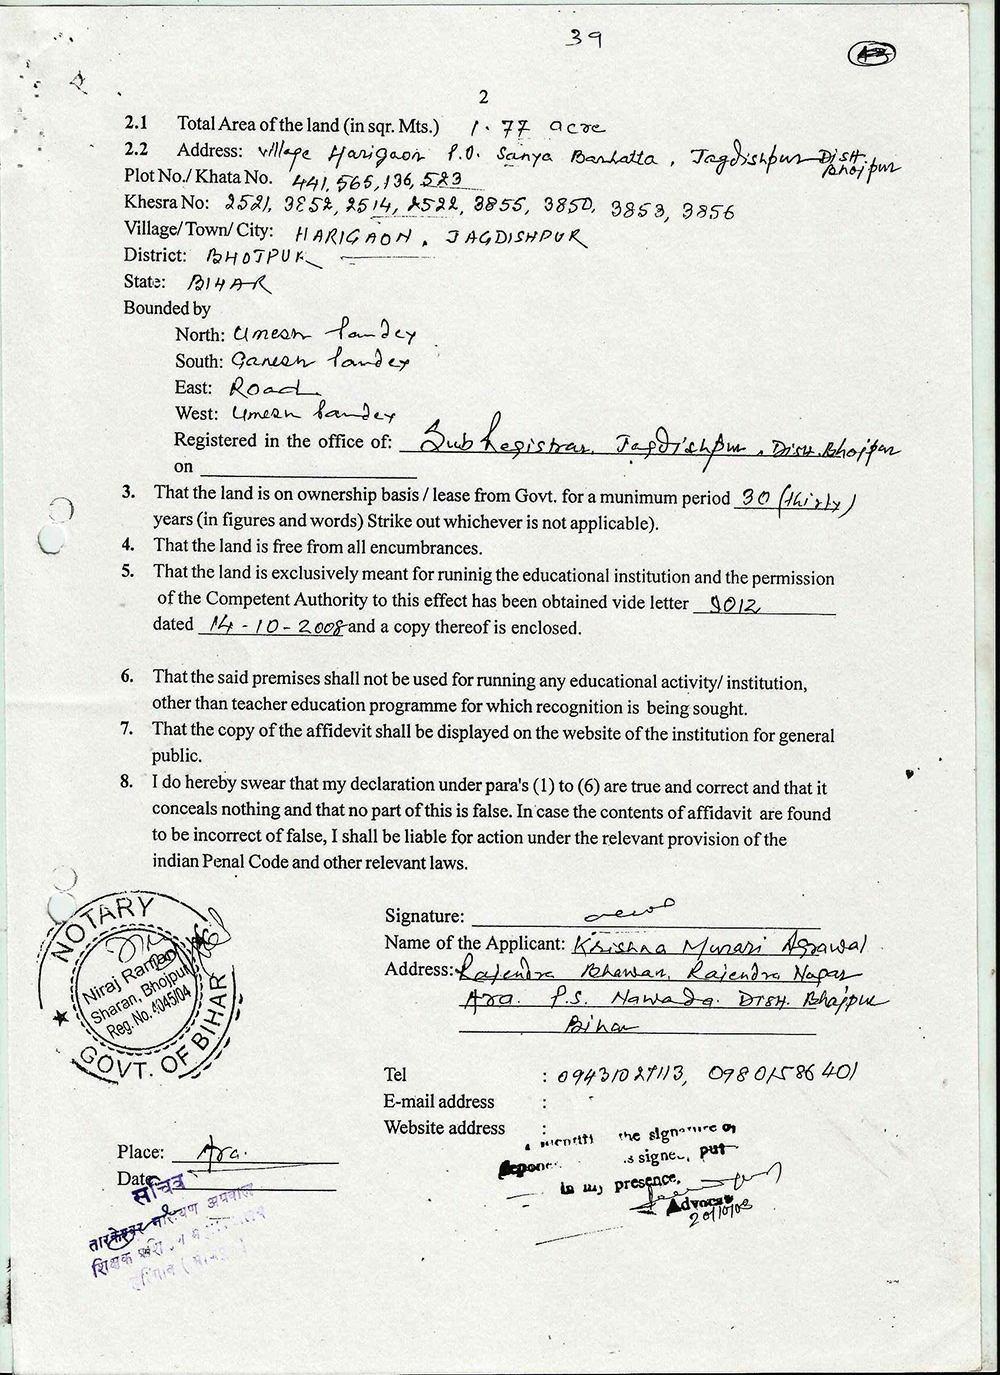 39
2
2.1 Total Area of the land (in sqr. Mts.) 1.77 acre
2.2 Address: village Harigaon P.O. Sanya Barhatta, Jagdishpur Distt. Bhojpur
Plot No./ Khata No. 441, 565, 136, 523
Khesra No: 2521, 3852, 2514, 2522, 3855, 3850, 3853, 3856
Village/ Town/ City: HARIGAON, JAGDISHPUR
District: BHOJPUR
State: BIHAR
Bounded by
North: Umesh Pandey
South: Ganesh Pandey
East: Road
West: Umesh Pandey
Registered in the office of: Sub Registrar, Jagdishpur, Distt. Bhojpur
on
3. That the land is on ownership basis / lease from Govt. for a munimum period 30 (thirty)
years (in figures and words) Strike out whichever is not applicable).
4. That the land is free from all encumbrances.
5. That the land is exclusively meant for runinig the educational institution and the permission
of the Competent Authority to this effect has been obtained vide letter 9012
dated 14-10-2008 and a copy thereof is enclosed.
6. That the said premises shall not be used for running any educational activity/ institution,
other than teacher education programme for which recognition is being sought.
7. That the copy of the affidevit shall be displayed on the website of the institution for general
public.
8. I do hereby swear that my declaration under para's (1) to (6) are true and correct and that it
conceals nothing and that no part of this is false. In case the contents of affidavit are found
to be incorrect of false, I shall be liable for action under the relevant provision of the
indian Penal Code and other relevant laws.
NOTARY
Niraj Raman
Sharan, Bhojpur
Reg. No. 4045/04
GOVT. OF BIHAR
Signature:
Name of the Applicant: Krishna Murari Agrawal
Address: Rajendra Bhawan, Rajendra Nagar
Ara. P.S. Nawada. Distt. Bhojpur
Bihar
Tel : 09431027113, 09801586401
E-mail address :
Website address :
the signature of
signed, put
in my presence.
Advocate
20/10/08
Place: Ara.
Date
सचिव
तारकेश्वर नारायण अग्रवाल
शिक्षक